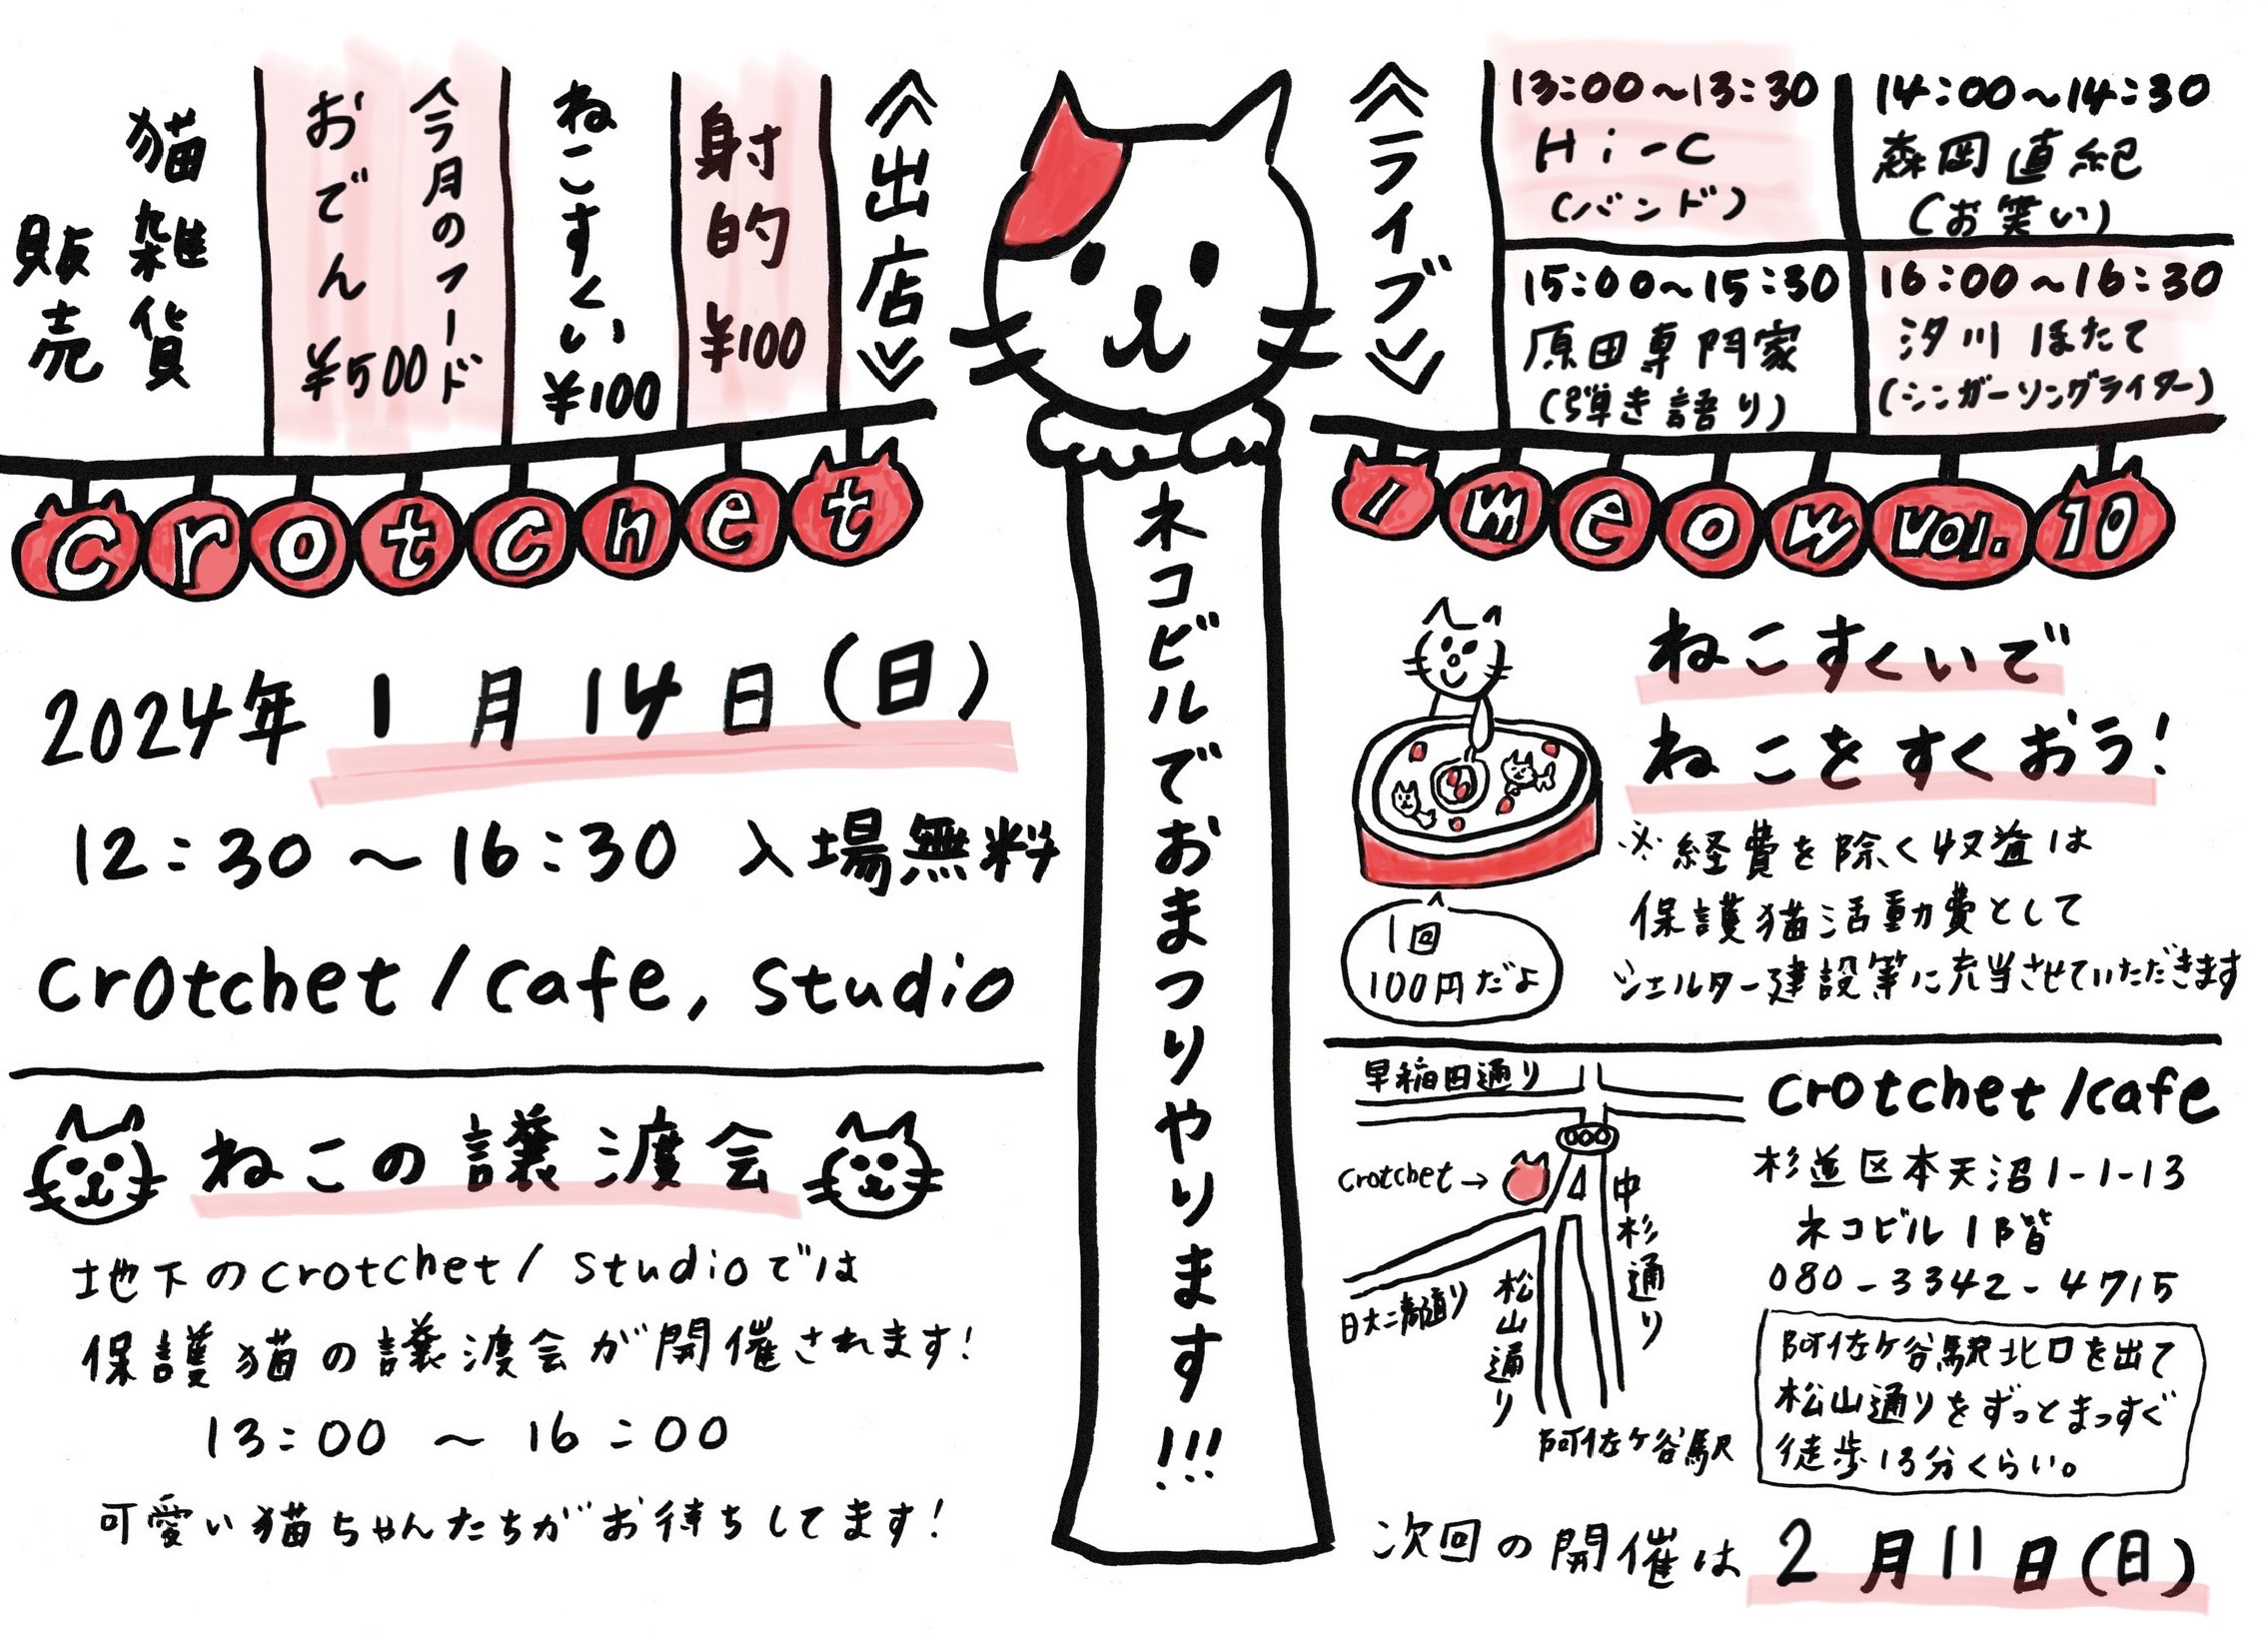 《出店》
射的 ¥100
ねこすくい ¥100
今月のフード
おでん ¥500
猫雑貨
販売
《ライブ》
13:00～13:30
Hi-C
(バンド)
14:00～14:30
森岡直紀
(お笑い)
15:00～15:30
原田専門家
(弾き語り)
16:00～16:30
汐川ほたて
(シンガーソングライター)
crotchet
/meow vol.10
ネコビルでおまつりやります!!!
2024年 1月14日(日)
12:30～16:30 入場無料
crotchet/cafe, studio
ねこの譲渡会
地下のcrotchet/studioでは
保護猫の譲渡会が開催されます!
13:00 ～ 16:00
可愛い猫ちゃんたちがお待ちしてます!
ねこすくいで
ねこをすくおう!
※経費を除く収益は
保護猫活動費として
シェルター建設等に充当させていただきます
1回
100円だよ
早稲田通り
crotchet→
中杉通り
日大二高通り
松山通り
阿佐ケ谷駅
crotchet/cafe
杉並区本天沼1-1-13
ネコビル1階
080-3342-4715
阿佐ケ谷駅北口を出て
松山通りをずっとまっすぐ
徒歩13分くらい。
次回の開催は 2月11日(日)